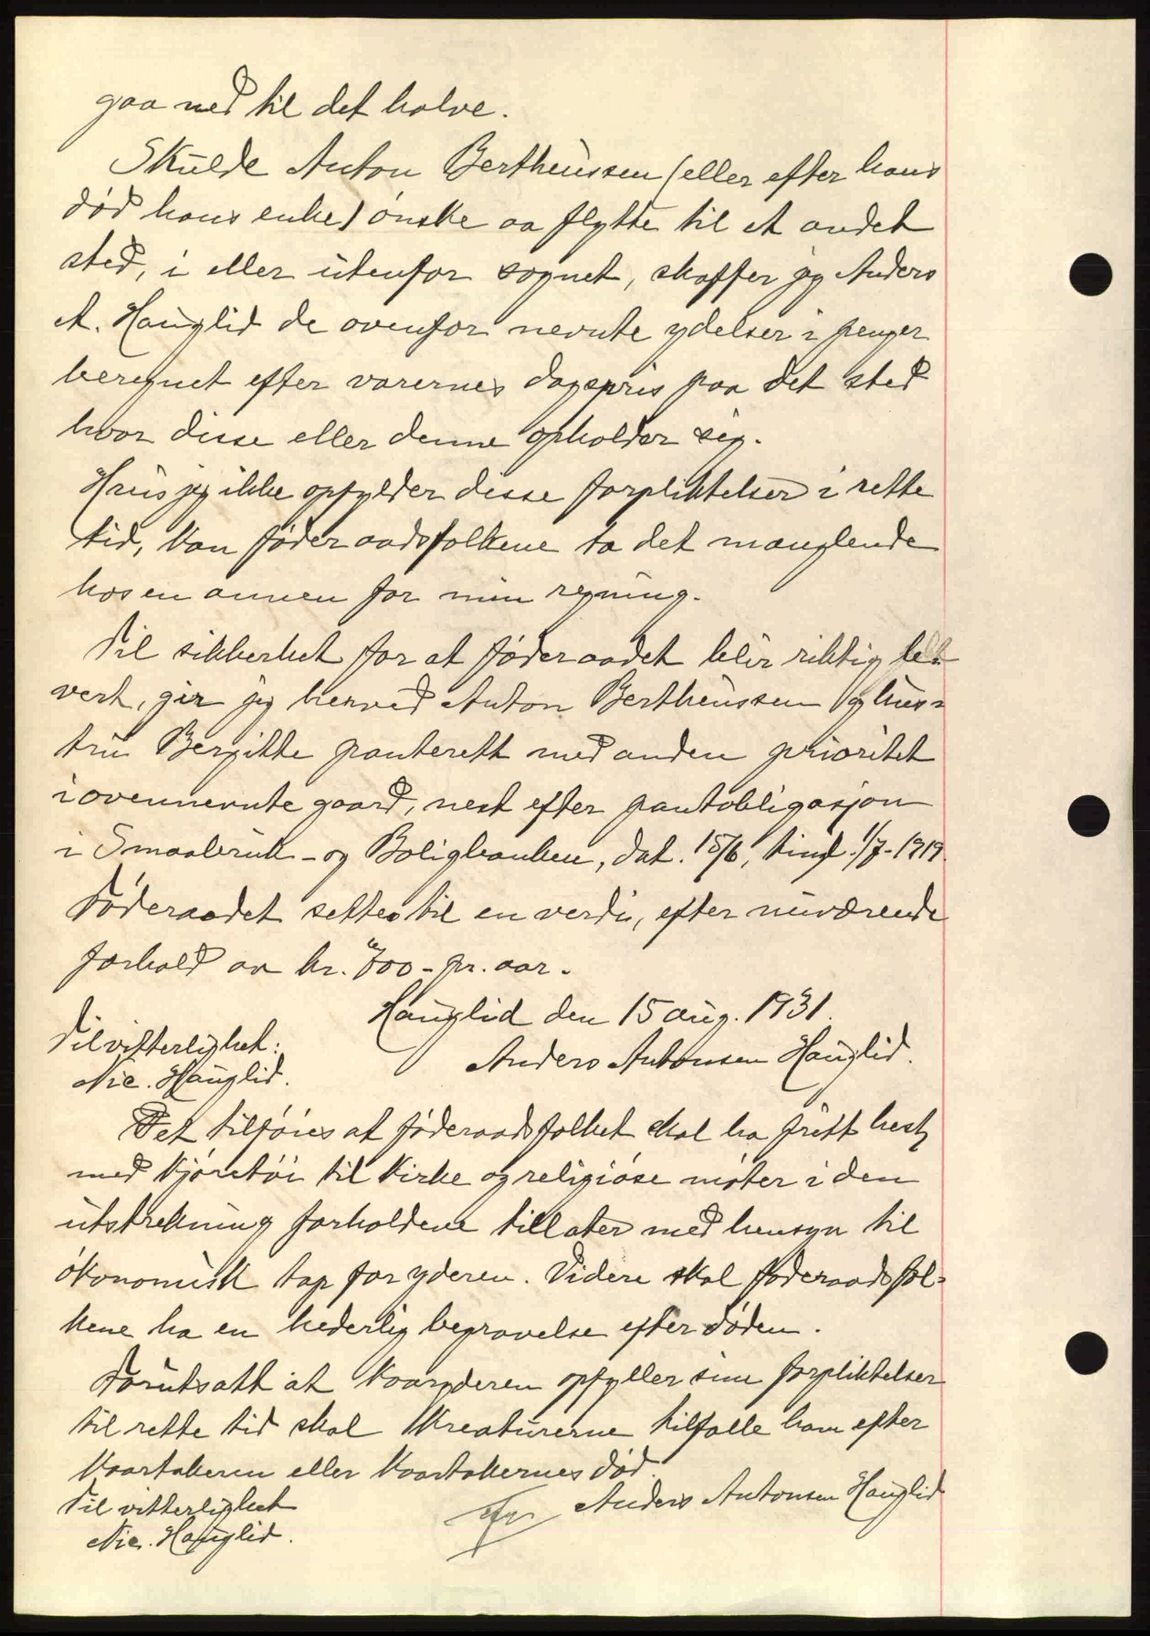 gaa ned til det halve.
Skulde Anton Bertheussen (eller efter hans
død hans enke) ønske aa flytte til et andet
sted, i eller utenfor sognet, skaffer jeg Anders
A. Hauglid de ovenfor nevnte ydelser i penger
beregnet efter varernes dagspris paa det sted
hvor disse eller denne opholder sig.
Hvis jeg ikke opfylder disse forpliktelser i rette
tid, kan føderaadsfolkene ta det manglende
hos en annen for min regning.
Til sikkerhet for at føderaadet blir riktig le-
vert, gir jeg herved Anton Bertheussen og hus-
tru Bergitte panterett med anden prioritet
i ovennevnte gaard, nest efter pantobligasjon
i Smaabruk- og Boligbanken, dat. 15/6, tingl. 1/7-1919.
Føderaadet settes til en verdi, efter nuværende
forhold av kr. 700- pr. aar.
Hauglid den 15 aug. 1931.
Til vitterlighet:
Anders Antonsen Hauglid.
Nic. Hauglid.
Det tilføies at føderaadsfolket skal ha fritt hest
med kjøretøi til kirke og religiøse møter i den
utstrekning forholdene tillater med hensyn til
økonomisk tap for yderen. Videre skal føderaadsfol-
kene ha en hederlig begravelse efter døden.
Forutsatt at kaaryderen opfyller sine forpliktelser
til rette tid skal kreaturerne tilfalle ham efter
kaartakeren eller kaartakernes død.
Til vitterlighet
Anders Antonsen Hauglid
Nic. Hauglid.